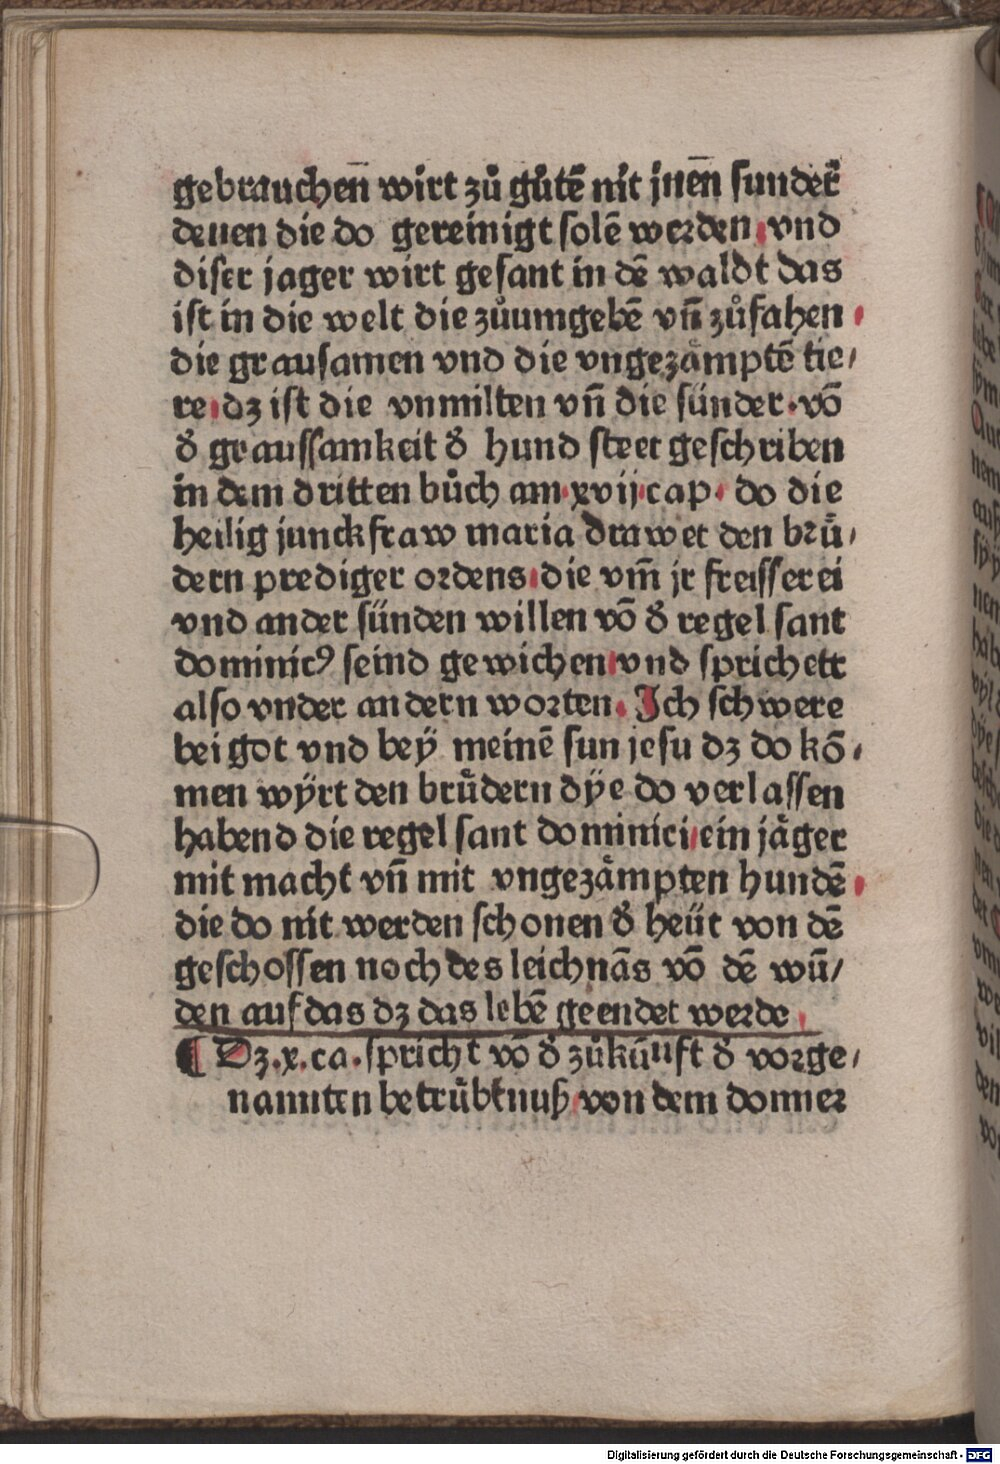 gebrauchen̄ wirt zů gůtē nit jnen̄ sunder̄
denen die do gereinigt solē werden vnd
diser jager wirt gesant in dē waldt das
ist in die welt die zůumgebē vn̄ zůfahen
die grausamen vnd die vngezämptē tie/
re dz ist die vnmilten vn̄ die sünder. võ
d̛ graussamkeit d̛ hund steet geschriben
in dem dritten bůch am xvij cap. do die
heilig junckfraw maria drawet den brů/
dern prediger ordens die vm̄ jr freisserei
vnd ander sünden willen võ d̛ regel sant
dominicꝰ seind gewichen vnd sprichett
also vnder andern worten. Ich schwere
bei got vnd beÿ meinē sun jesu dz do kō/
men wÿrt den brůdern dÿe do verlassen
habend die regel sant dominici ein jäger
mit macht vn̄ mit vngezämpten hundē
die do nit werden schonen d̛ heüt von dē
geschossen noch des leichnās võ dē wū/
den auf das dz das lebē geendet werde
¶ Dz .x. ca. spricht võ d̛ zůkūnft d̛ vorge/
nannten betrübtnuß von dem donner
nem
Digitalisierung gefördert durch die Deutsche Forschungsgemeinschaft - DFG